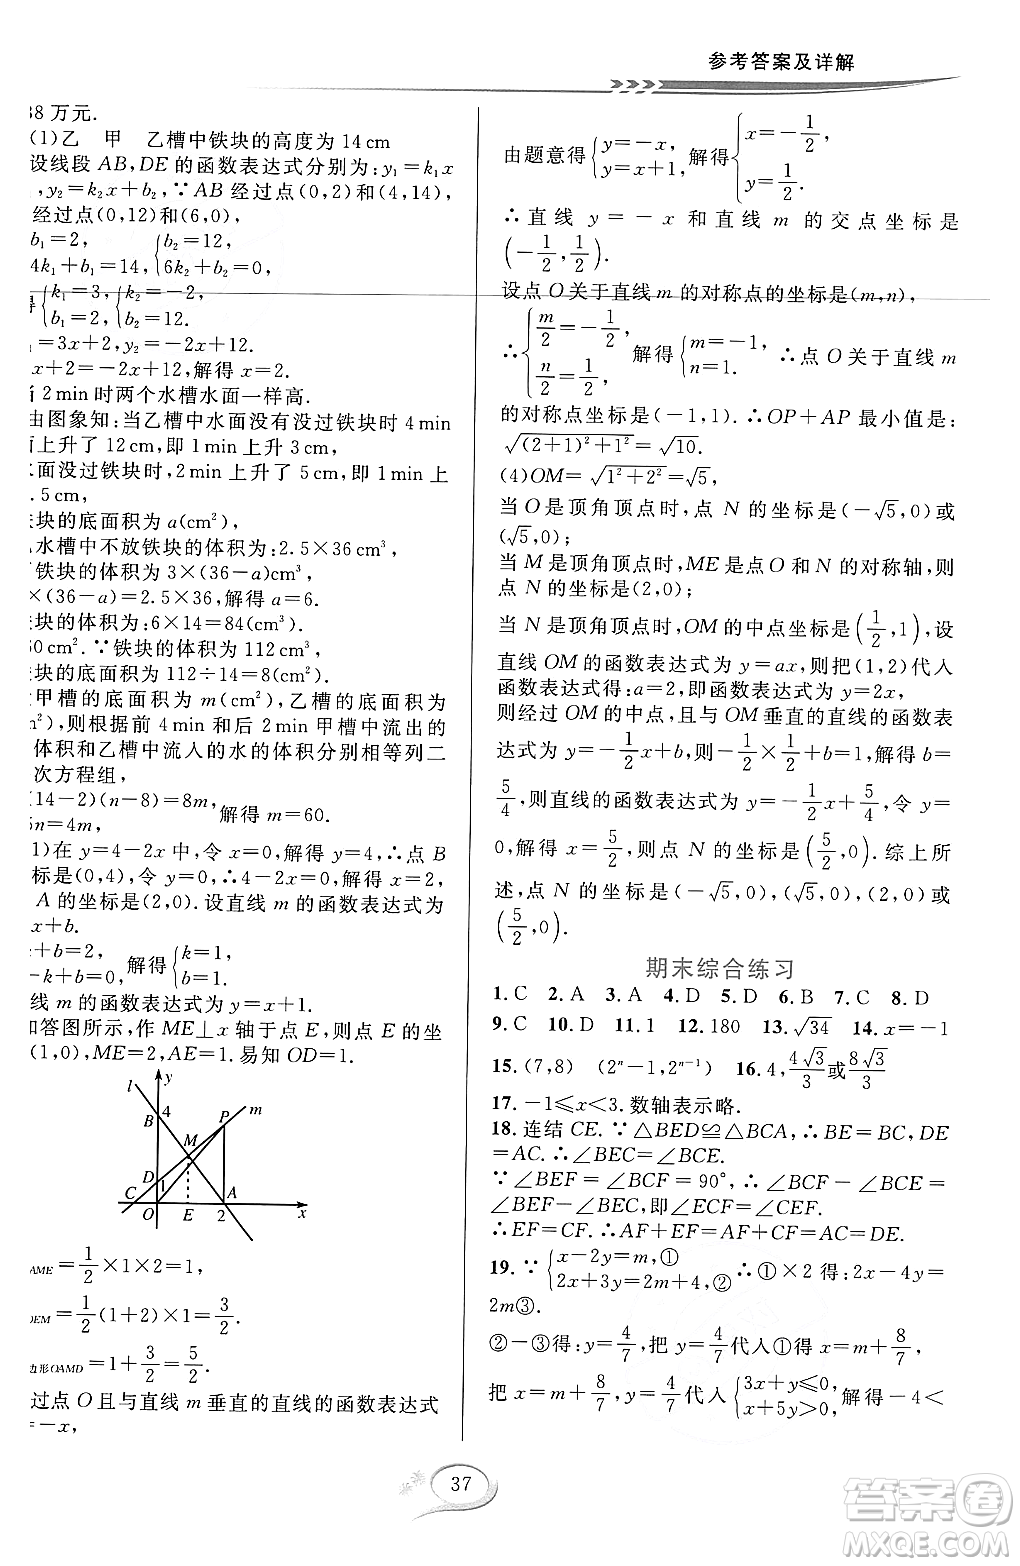 参考答案及详解
38 万元.
(1)乙　甲　乙槽中铁块的高度为 14 cm
设线段 AB,DE 的函数表达式分别为:y₁=k₁x
,y₂=k₂x+b₂,∵AB 经过点(0,2)和(4,14),
经过点(0,12)和(6,0),
b₁=2,　{b₂=12,
4k₁+b₁=14,　6k₂+b₂=0,
得{k₁=3,　{k₂=-2,
b₁=2,　b₂=12.
₁=3x+2,y₂=-2x+12.
x+2=-2x+12,解得 x=2.
2 min 时两个水槽水面一样高.
由图象知:当乙槽中水面没有没过铁块时 4 min
上升了 12 cm,即 1 min 上升 3 cm,
面没过铁块时,2 min 上升了 5 cm,即 1 min
.5 cm,
块的底面积为 a(cm²),
水槽中不放铁块的体积为:2.5×36 cm³,
铁块的体积为 3×(36-a)cm³,
×(36-a)=2.5×36,解得 a=6.
块的体积为:6×14=84(cm³).
60 cm².∵铁块的体积为 112 cm³,
底面积为 112÷14=8(cm²).
甲槽的底面积为 m(cm²),乙槽的底面积为
m²),则根据前 4 min 和后 2 min 甲槽中流出的
体积和乙槽中流入的水的体积分别相等列二
次方程组,
(14-2)(n-8)=8m,
5n=4m,　解得 m=60.
1)在 y=4-2x 中,令 x=0,解得 y=4,∴点 B
标是(0,4),令 y=0,∴4-2x=0,解得 x=2,
A 的坐标是(2,0).设直线 m 的函数表达式为
x+b.
+b=2,　解得{k=1,
b=1.
线 m 的函数表达式为 y=x+1.
如答图所示,作 ME⊥x 轴于点 E,则点 E 的坐
(1,0),ME=2,AE=1.易知 OD=1.
l　y　B　4　P　m　M　D　1　C　O　E　2　A　x
AME=1/2×1×2=1,
OEM=1/2(1+2)×1=3/2,
边形OAMD=1+3/2=5/2.
过点 O 且与直线 m 垂直的直线的函数表达式
=-x,
由题意得{y=-x, y=x+1, 解得{x=-1/2, y=1/2.
∴直线 y=-x 和直线 m 的交点坐标是
(-1/2,1/2).
设点 O 关于直线 m 的对称点的坐标是(m,n),
∴{m/2=-1/2, n/2=1/2, 解得{m=-1, n=1. ∴点 O 关于直线 m
的对称点坐标是(-1,1).∴OP+AP 最小值是:
√((2+1)²+1²)=√10.
(4)OM=√(1²+2²)=√5,
当 O 是顶角顶点时,点 N 的坐标是(-√5,0)或
(√5,0);
当 M 是顶角顶点时,ME是点 O 和 N 的对称轴,则
点 N 的坐标是(2,0);
当 N 是顶角顶点时,OM的中点坐标是(1/2,1),设
直线 OM 的函数表达式为 y=ax,则把(1,2)代入
函数表达式得:a=2,即函数表达式为 y=2x,
则经过 OM 的中点,且与 OM 垂直的直线的函数表
达式为 y=-1/2x+b,则-1/2×1/2+b=1,解得 b=
5/4,则直线的函数表达式为 y=-1/2x+5/4,令 y=
0,解得 x=5/2,则点 N 的坐标是(5/2,0).综上所
述,点 N 的坐标是(-√5,0),(√5,0),(2,0)或
(5/2,0).
期末综合练习
1. C　2. A　3. A　4. D　5. D　6. B　7. C　8. D
9. C　10. D　11. 1　12. 180　13. √34　14. x=-1
15. (7,8)　(2ⁿ-1,2ⁿ⁻¹)　16. 4,4√3/3或8√3/3
17. -1≤x<3.数轴表示略.
18. 连结 CE.∵△BED≌△BCA,∴BE=BC,DE
=AC.∴∠BEC=∠BCE.
∵∠BEF=∠BCF=90°,∴∠BCF-∠BCE=
∠BEF-∠BEC,即∠ECF=∠CEF.
∴EF=CF.∴AF+EF=AF+CF=AC=DE.
19. ∵{x-2y=m,① 2x+3y=2m+4,② ∴①×2得:2x-4y=
2m③.
②-③得:y=4/7,把 y=4/7代入①得:x=m+8/7,
把 x=m+8/7,y=4/7代入{3x+y≤0, x+5y>0, 解得-4<
37
答案圈
MXQE.COM